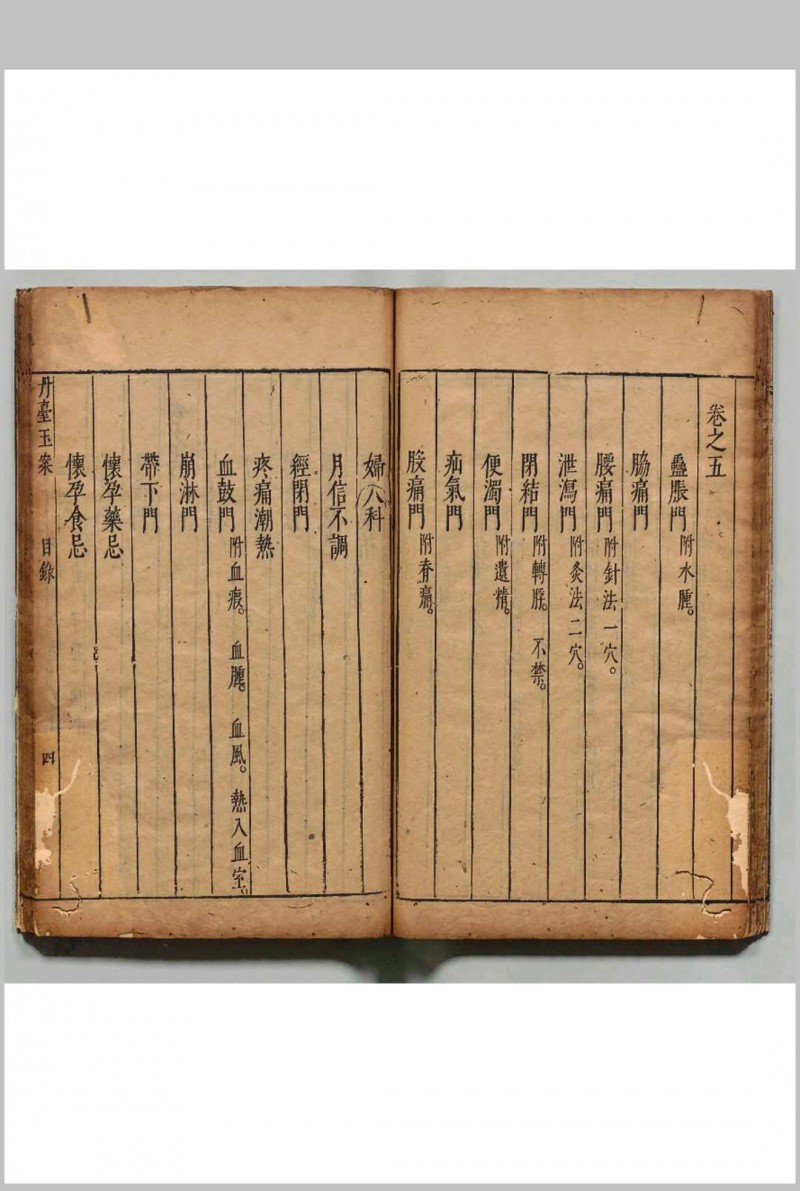 卷之五
蠱脹門 附水腫。
脇痛門
腰痛門 附針法一穴。
泄瀉門 附灸法二穴。
閉結門 附轉脬。 不禁。
便濁門 附遺精。
疝氣門
腹痛門 附脊痛。
婦人科
月信不調
經閉門
疼痛潮熱
血鼓門 附血瘕。 血腫。 血風。 熱入血室。
崩淋門
帶下門
懷孕藥忌
懷孕食忌
丹臺玉案 目錄 四